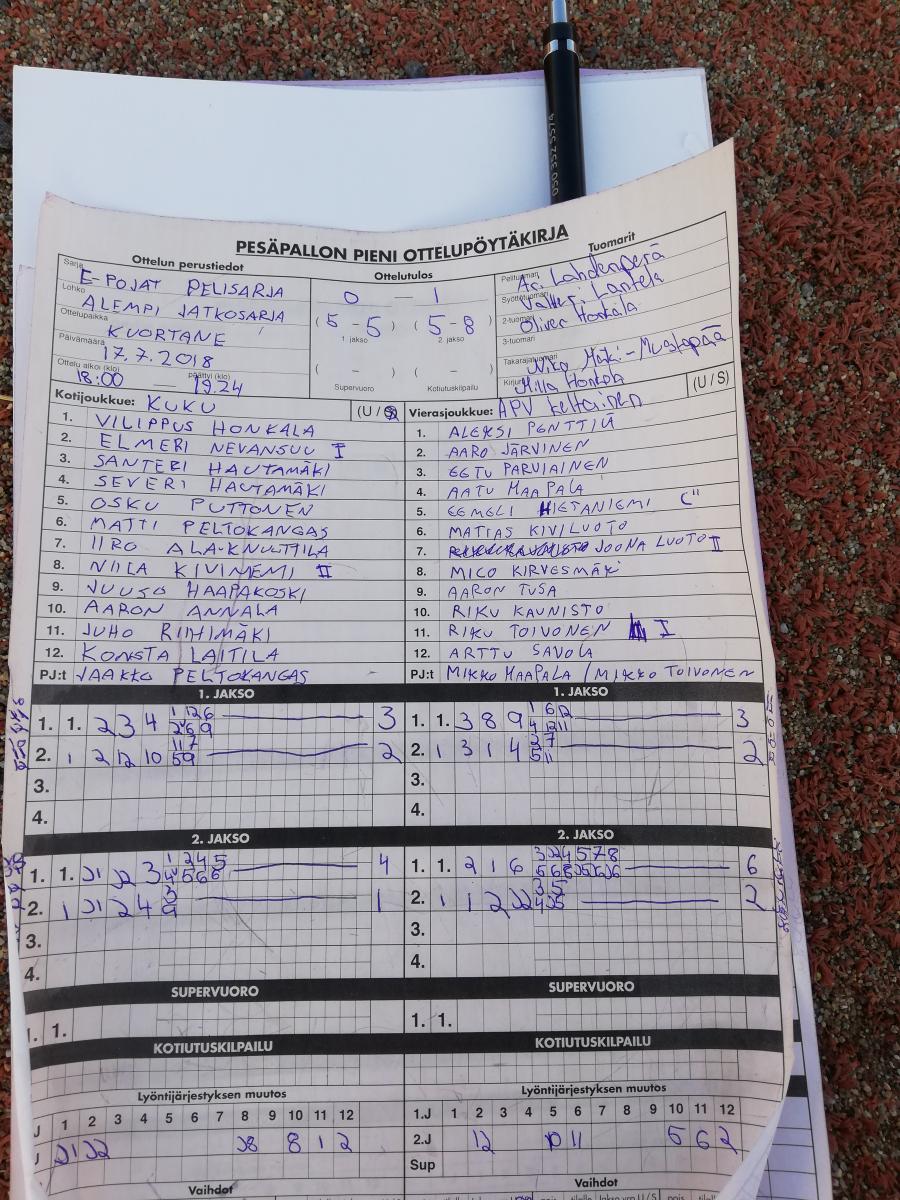 050 352 5574
PESÄPALLON PIENI OTTELUPÖYTÄKIRJA
Ottelun perustiedot
Ottelutulos
Tuomarit
Sarja E-POJAT PELISARJA
Lohko ALEMPI JATKOSARJA
Ottelupaikka KUORTANE
Päivämäärä 17.7.2018
Ottelu alkoi (klo) päättyi (klo)
18:00 — 19.24
0 — 1
(5 - 5) (5 - 8)
1. jakso 2. jakso
( - ) ( - )
Supervuoro Kotiutuskilpailu
Pelituomari Lahdenperä
Syöttötuomari Lantela
2-tuomari Oliver Honkala
3-tuomari
Takarajatuomari Niko Mäki-Mustapää
Kirjuri Milla Honkola
Kotijoukkue: KUKU (U / S)
1. VILIPPUS HONKALA
2. ELMERI NEVANSUU I
3. SANTERI HAUTAMÄKI
4. SEVERI HAUTAMÄKI
5. OSKU PUTTONEN
6. MATTI PELTOKANGAS
7. IIRO ALA-KNUUTTILA
8. NIILA KIVINIEMI II
9. JUUSO HAAPAKOSKI
10. AARON ANNALA
11. JUHO RIIHIMÄKI
12. KONSTA LAITILA
PJ:t JAAKKO PELTOKANGAS
Vierasjoukkue: APV keltainen (U / S)
1. ALEKSI PENTTILÄ
2. AARO JÄRVINEN
3. EETU PARVIAINEN
4. AATU HAAPALA
5. EEMELI HIETANIEMI C"
6. MATIAS KIVILUOTO
7. JOONA LUOTO II
8. MICO KIRVESMÄKI
9. AARON TUSA
10. RIKU KAUNISTO
11. RIKU TOIVONEN I
12. ARTTU SAVOLA
PJ:t MIKKO HAAPALA / MIKKO TOIVONEN
1. JAKSO
1. 1. 2 3 4 1 12 6 3
2 6 9
2. 1 2 12 10 11 7 2
5 9
3.
4.
1. JAKSO
1. 1. 3 8 9 1 6 12 3
4 12 11
2. 1 3 1 4 3 7 2
5 11
3.
4.
2. JAKSO
1. 1. J1 J2 3 1 2 4 5 4
4 5 6 8
2. 1 J1 2 4 3 1
9
3.
4.
2. JAKSO
1. 1. 2 1 6 3 J2 4 5 7 8 6
2. 1 1 2 J2 3 5 2
4 J5
3.
4.
SUPERVUORO
1. 1.
SUPERVUORO
1. 1.
KOTIUTUSKILPAILU
KOTIUTUSKILPAILU
Lyöntijärjestyksen muutos
J 1 2 3 4 5 6 7 8 9 10 11 12
J J1 J2 J8 8 1 2
Vaihdot
Lyöntijärjestyksen muutos
1.J 1 2 3 4 5 6 7 8 9 10 11 12
2.J 12 10 11 5 6 2
Sup
Vaihdot